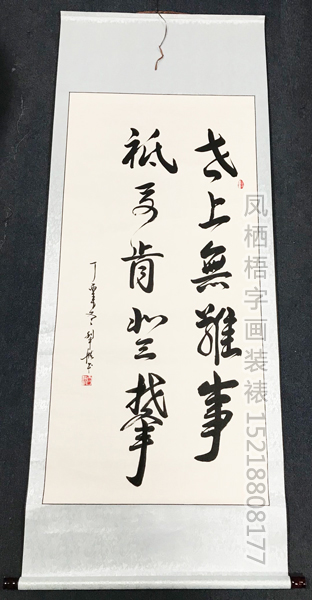 世上無難事
祗要肯登攀
丁酉
凤栖梧字画装裱 15218808177